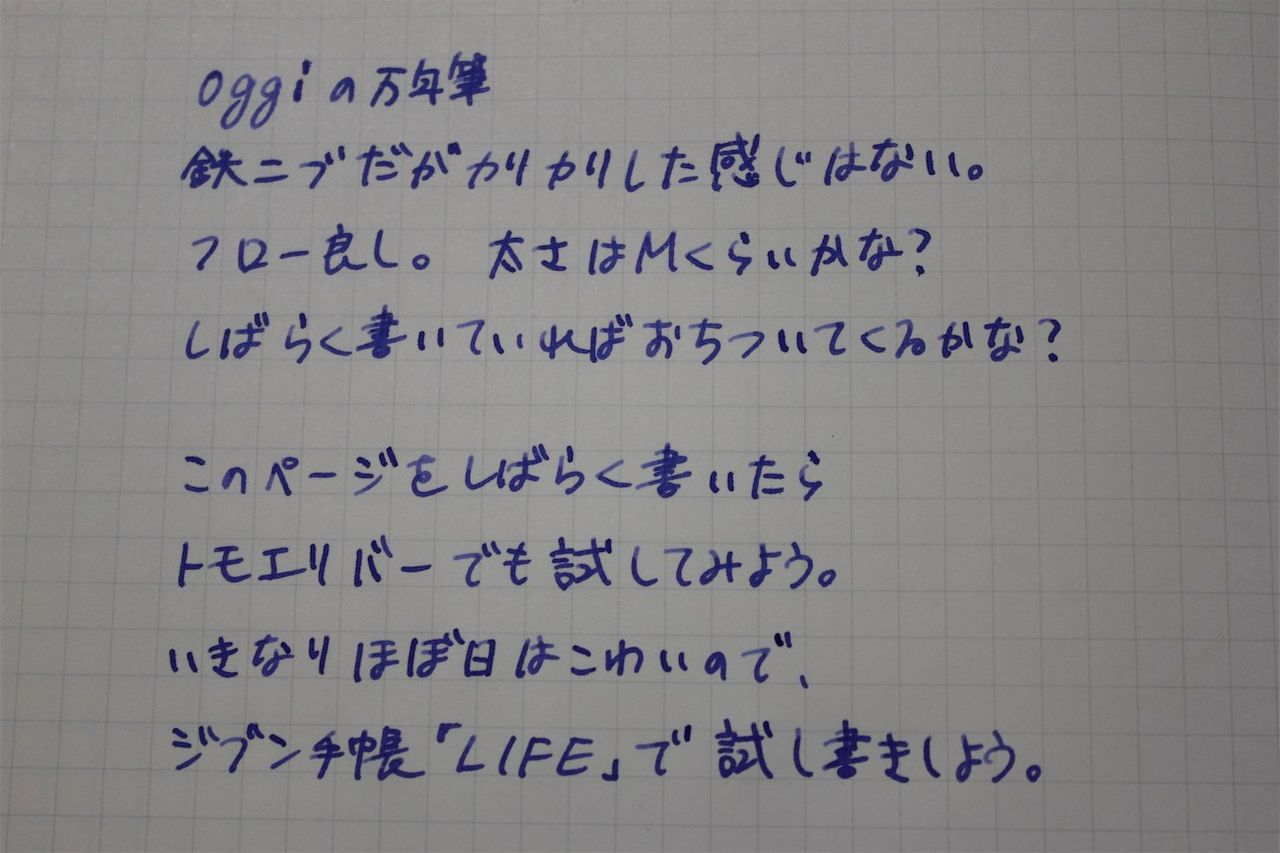 Oggiの万年筆
鉄ニブだがカリカリした感じはない。
フロー良し。 太さはMくらいかな?
しばらく書いていればおちついてくるかな?
このページをしばらく書いたら
トモエリバーでも試してみよう。
いきなりほぼ日はこわいので、
ジブン手帳「LIFE」で試し書きしよう。